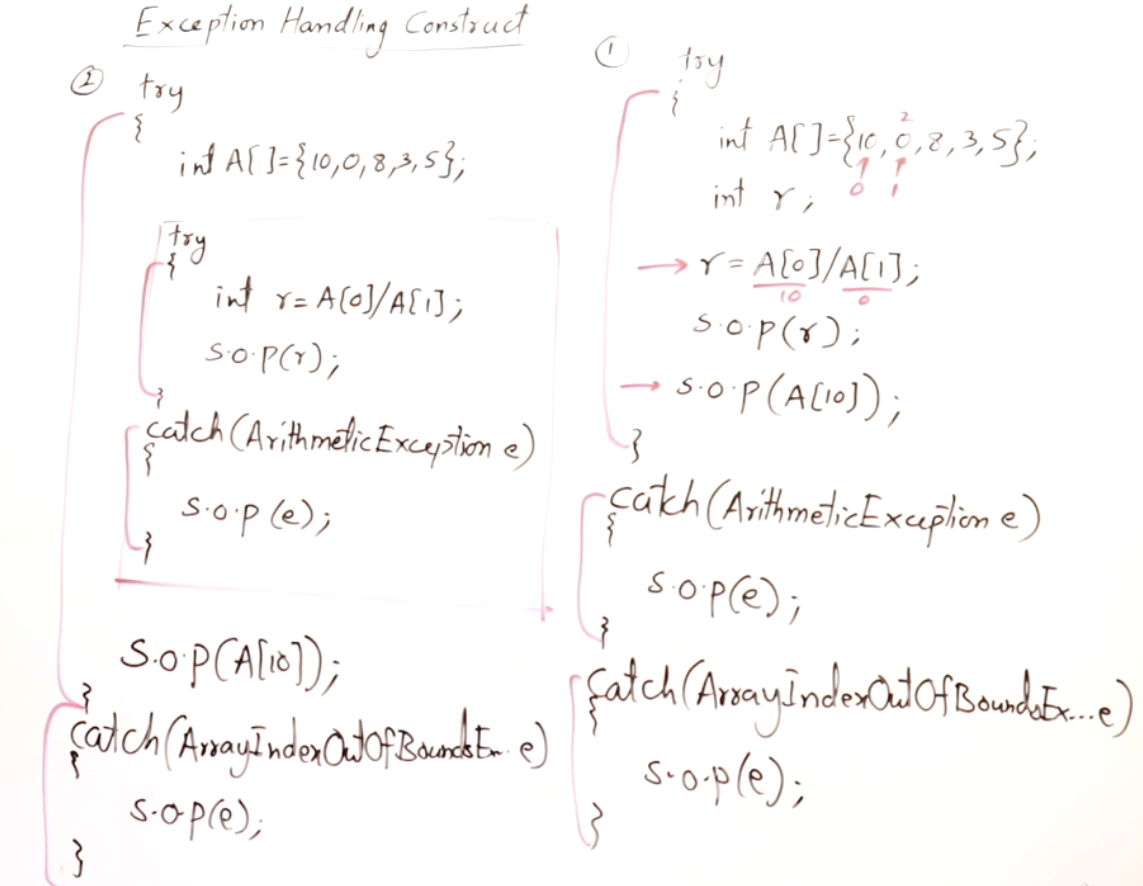 Exception Handling Construct
② try
{
int A[]={10,0,8,3,5};
try
{
int r= A[0]/A[1];
S.O.P(r);
}
catch(ArithmeticException e)
{
S.O.P(e);
}
S.O.P(A[10]);
}
catch(ArrayIndexOutOfBoundsEx.. e)
{
S.O.P(e);
}
① try
{
2
int A[]={10,0,8,3,5};
0 1
int r;
r= A[0]/A[1];
10 0
S.O.P(r);
S.O.P(A[10]);
}
catch(ArithmeticException e)
{
S.O.P(e);
}
catch(ArrayIndexOutOfBoundsEx... e)
{
S.O.P(e);
}